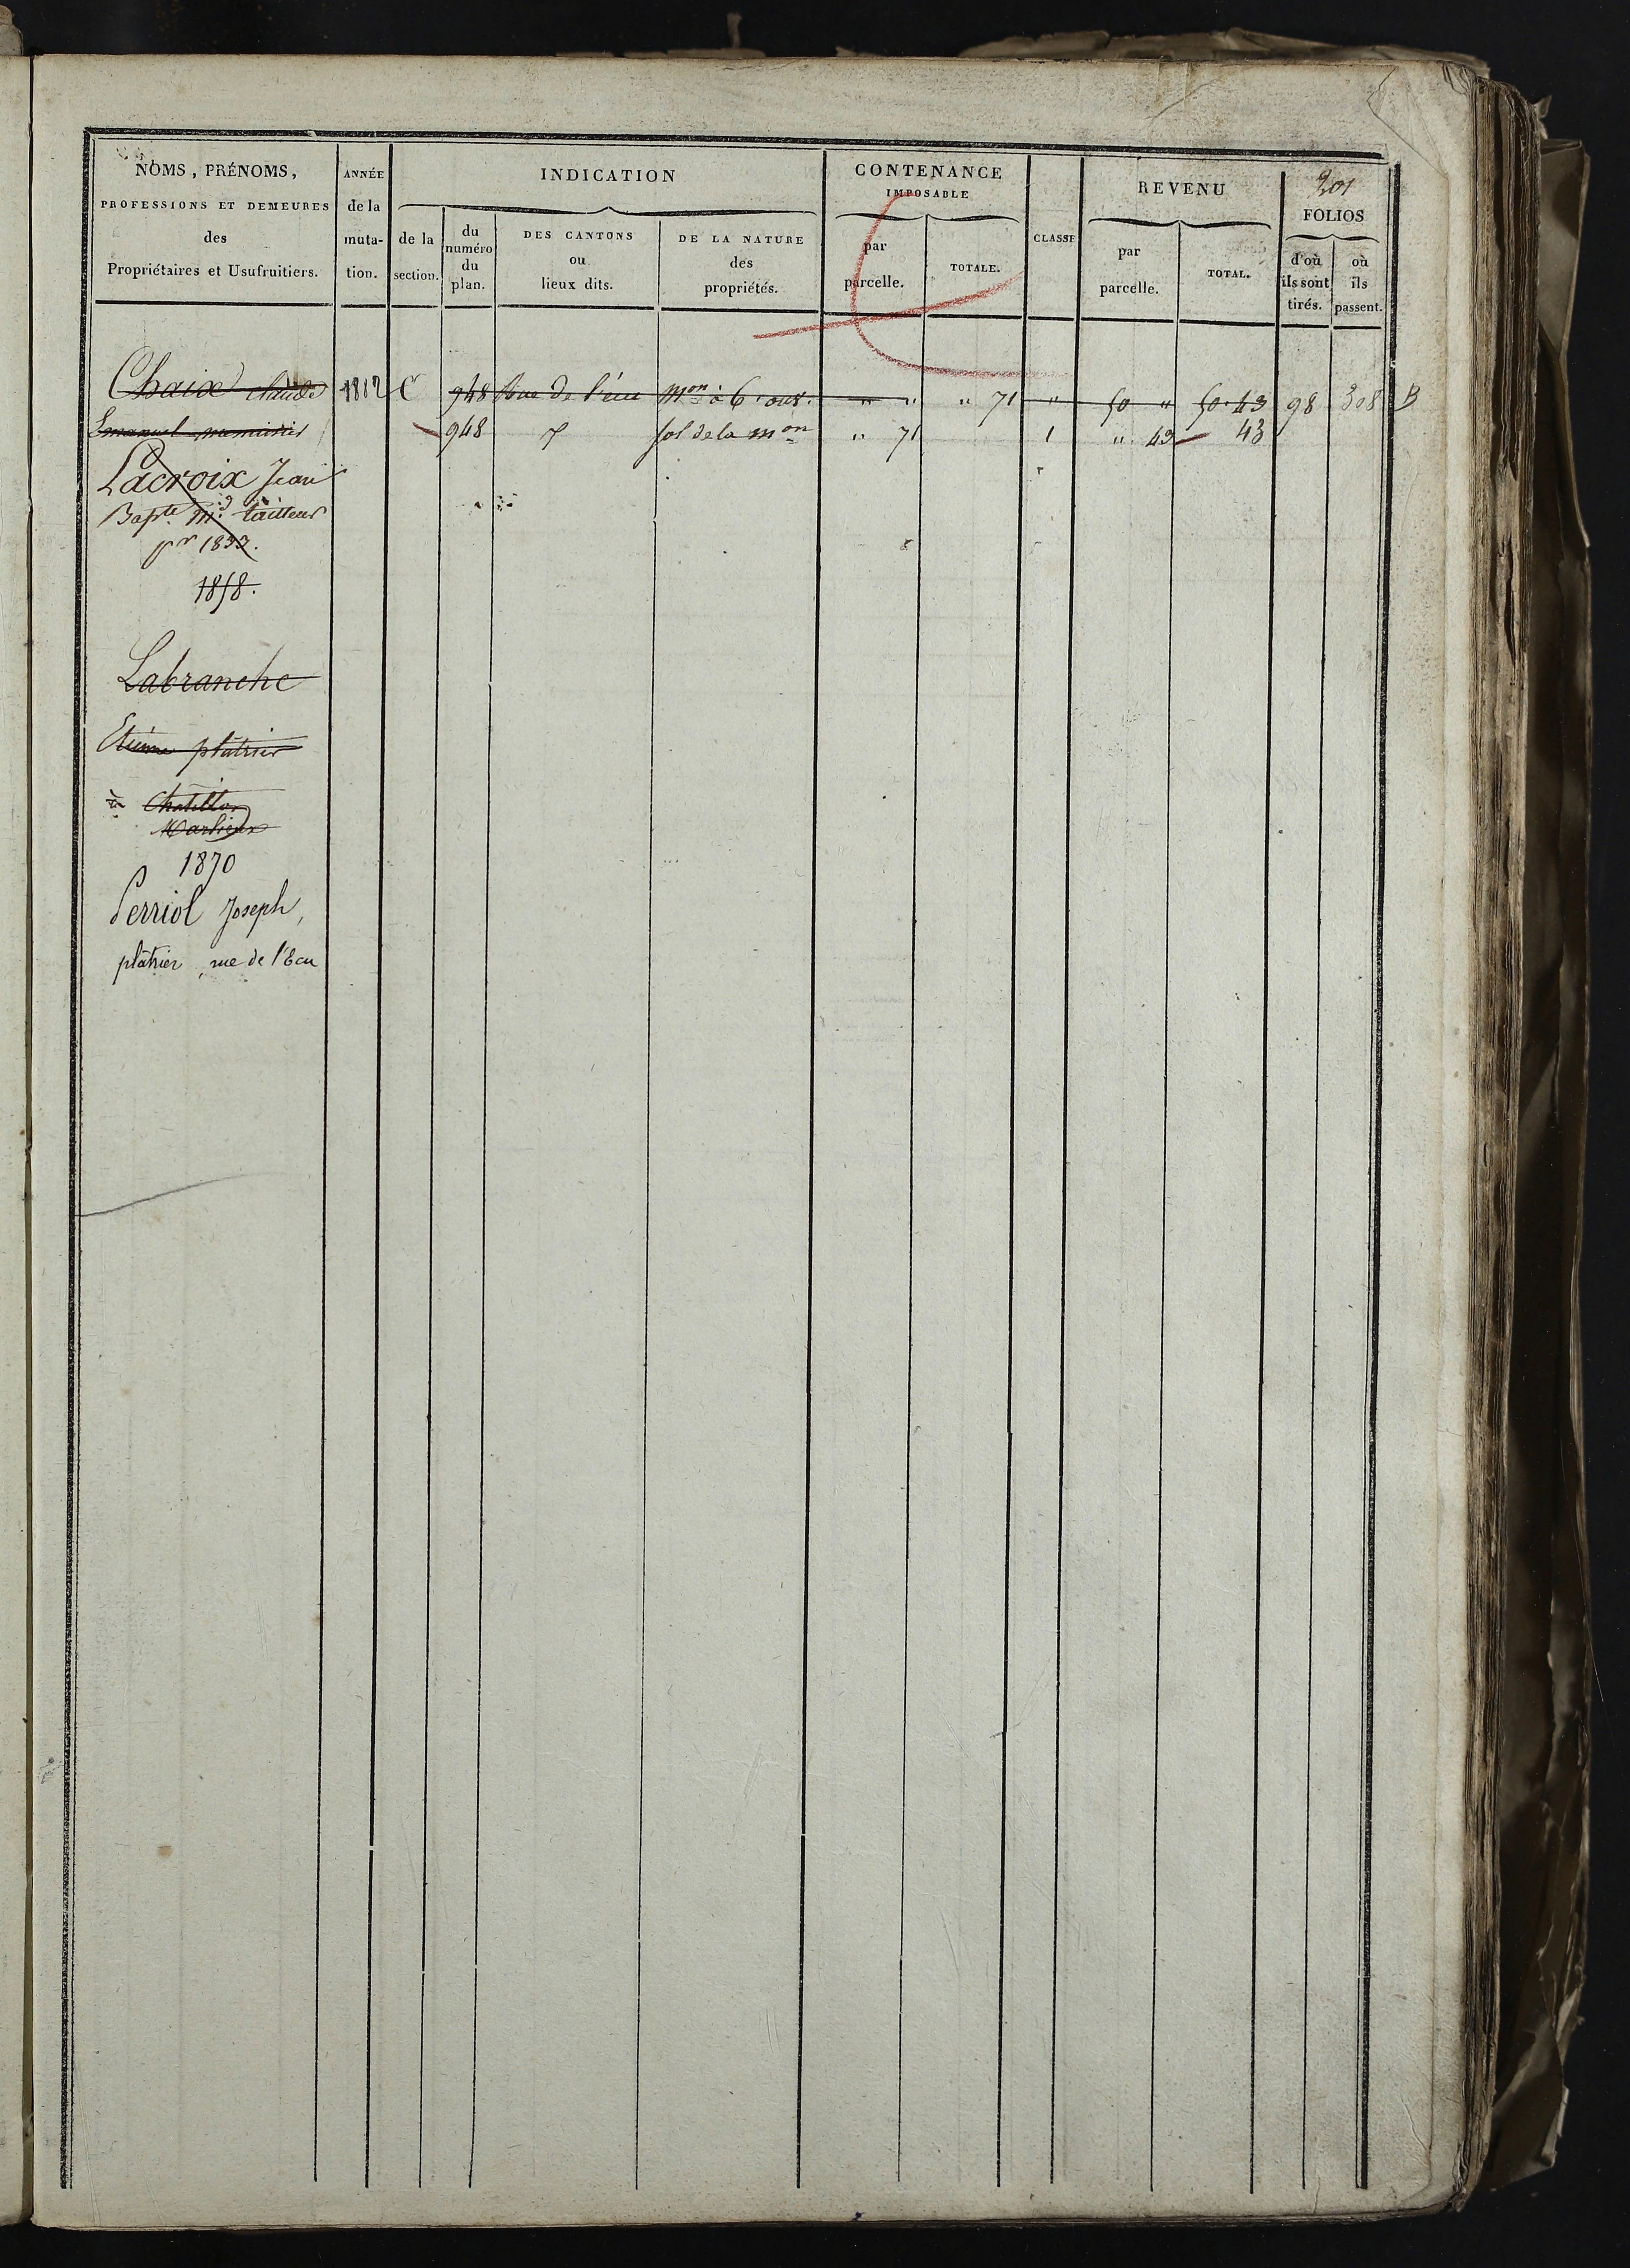 201
NOMS, PRÉNOMS,
PROFESSIONS ET DEMEURES
des
Propriétaires et Usufruitiers.
ANNÉE
de la
muta-
tion.
INDICATION
de la
section.
du
numéro
du
plan.
DES CANTONS
ou
lieux dits.
DE LA NATURE
des
propriétés.
CONTENANCE
IMPOSABLE
par
parcelle.
TOTALE.
CLASSE
REVENU
par
parcelle.
TOTAL.
FOLIOS
d'où
ils sont
tirés.
où
ils
passent.
Chaix Claude 1812 C 948 Rue de l'écu mon à 6 ouv. " " " 71 " 50 " 50.43 98 308 B
Emanuel 948 sol de la mon " 71 1 " 43 43
Lacroix Jean
Bapte md tailleur
pr 1833.
1858.
Labranche
Etienne platrier
à Chatillon
Marlieux
1870
Perriol Joseph,
plâtrier, rue de l'Ecu